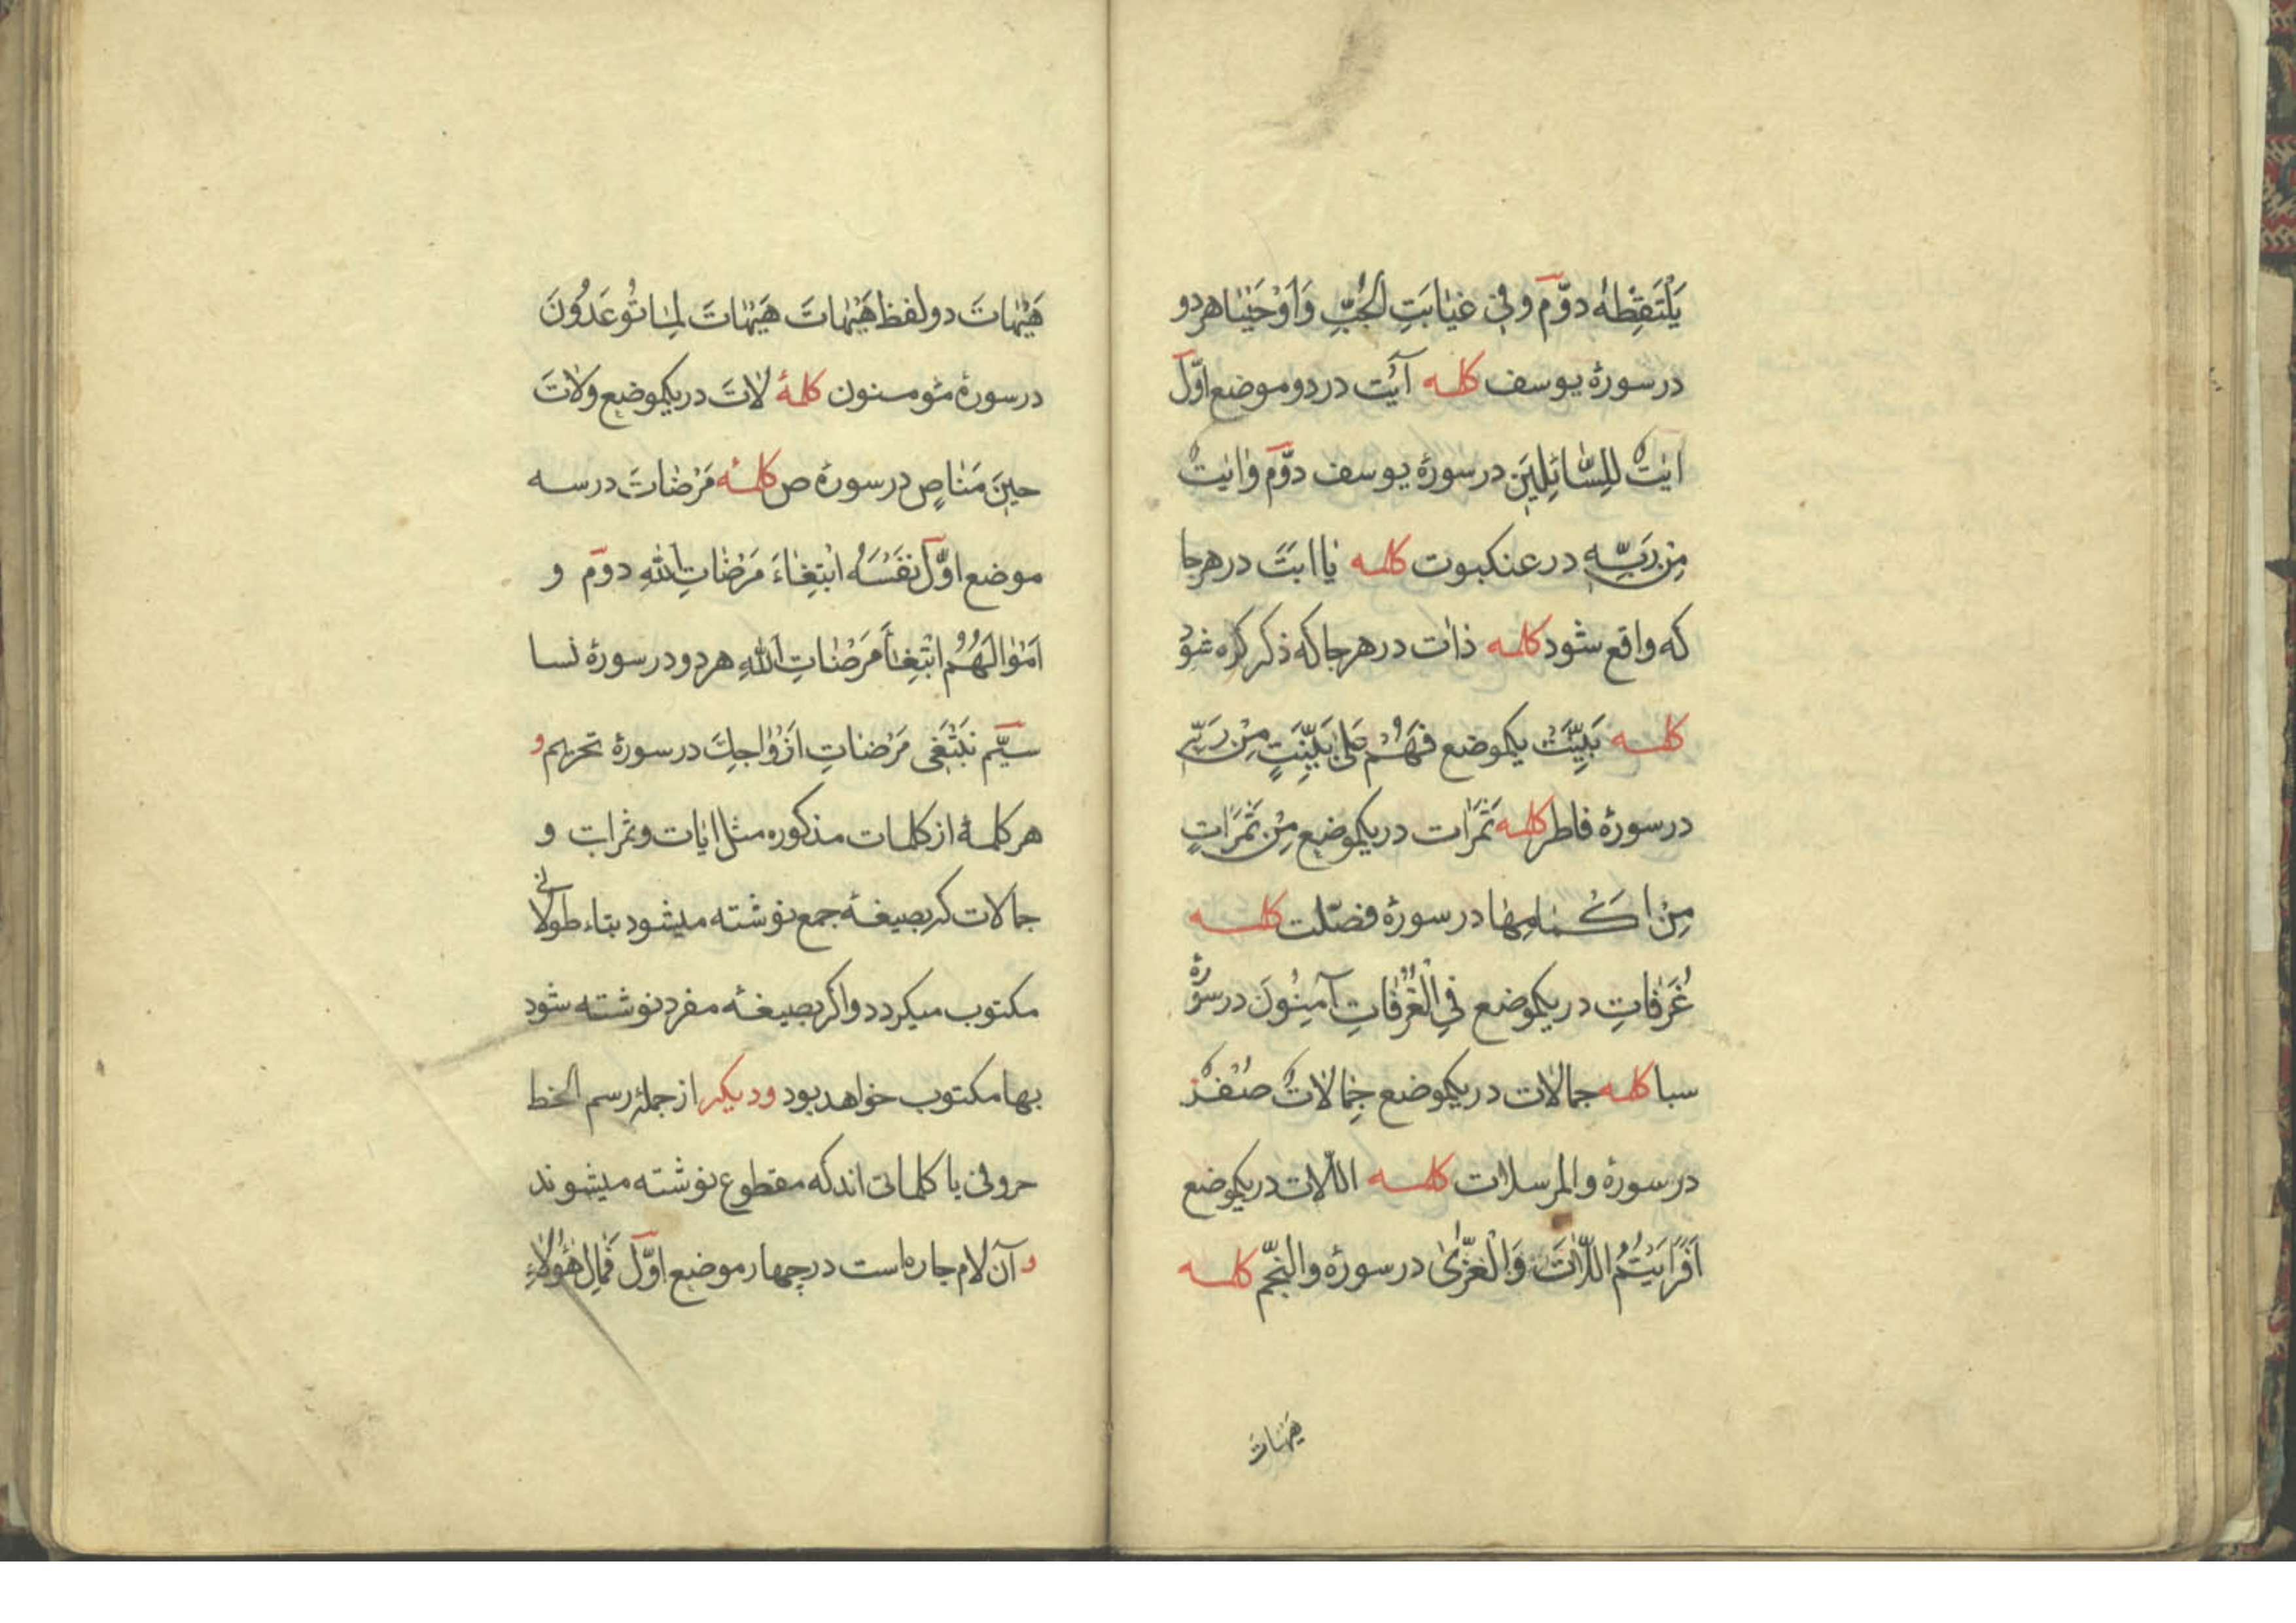 يَلْتَقِطْهُ دوّم وفي غَيٰابَتِ الْجُبِّ وَاَوْحَيْنٰا هردو
در سورهٔ يوسف كلمه آيٰت در دو موضع اوّل
اٰيٰتٌ لِلسّٰائِلِينَ در سورهٔ يوسف دوّم وٰايٰتٌ
مِنْ رَبِّهِ در عنكبوت كلمه يٰا ابَتَ در هرجا
كه واقع شود كلمه ذات در هرجا كه ذكر كرده شود
كلمه بَيِّنَتْ يكموضع فَهُمْ عَلىٰ بَيِّنَتٍ مِنْ رَبّي
در سورهٔ فاطر كلمه ثَمَرٰات در يكموضع مِنْ ثَمَرٰاتٍ
مِنْ اَكْمٰامِهٰا در سورهٔ فصّلت كلمه
غُرَفٰاتِ در يكموضع فِي الْغُرُفٰاتِ آمِنُونَ در سورهٔ
سبا كلمه جمالات در يكموضع جِمٰالاٰتٌ صُفْرٌ
در سورهٔ والمرسلات كلمه اللّات در يكموضع
اَفَرَاَيْتُمُ اللّٰاتَ وَالْعُزّىٰ در سورهٔ والنّجم كلمه
هَيْهٰاتَ
هَيْهٰاتَ دو لفظ هَيْهٰاتَ هَيْهٰاتَ لِمٰا تُوعَدُونَ
در سورهٔ مؤمنون كلمهٔ لٰاتَ در يكموضع ولاٰتَ
حينَ مَنٰاصٍ در سورهٔ ص كلمهٔ مَرْضٰاتَ در سه
موضع اوّل نَفْسَهُ ابْتِغٰاءَ مَرْضٰاتِ اللّٰهِ دوّم و
اَمْوٰالَهُمُ ابْتِغٰاءَ مَرْضٰاتِ اللّٰهِ هردو در سورهٔ نسا
سيّم تَبْتَغى مَرْضٰاتِ اَزْوٰاجِكَ در سورهٔ تحريم و
هر كلمهٔ از كلمات مذكوره مثل اٰيٰات وثمرات و
جمالات كه بصيغهٔ جمع نوشته ميشود بتاء طولاني
مكتوب ميكردد واكر بصيغهٔ مفرد نوشته شود
بها مكتوب خواهد بود وديكر از جملهٔ رسم الخط
حروفى يا كلماتى اند كه مقطوع نوشته ميشوند
و آن لام جاره است در چهار موضع اوّل فَمٰالِ هٰؤُلاٰءِ